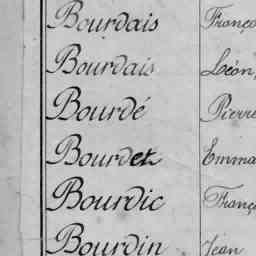 Bourdais Franço
Bourdais Léon,
Bourdé Pierre
Bourdet Emma
Bourdic Franç
Bourdin Jean